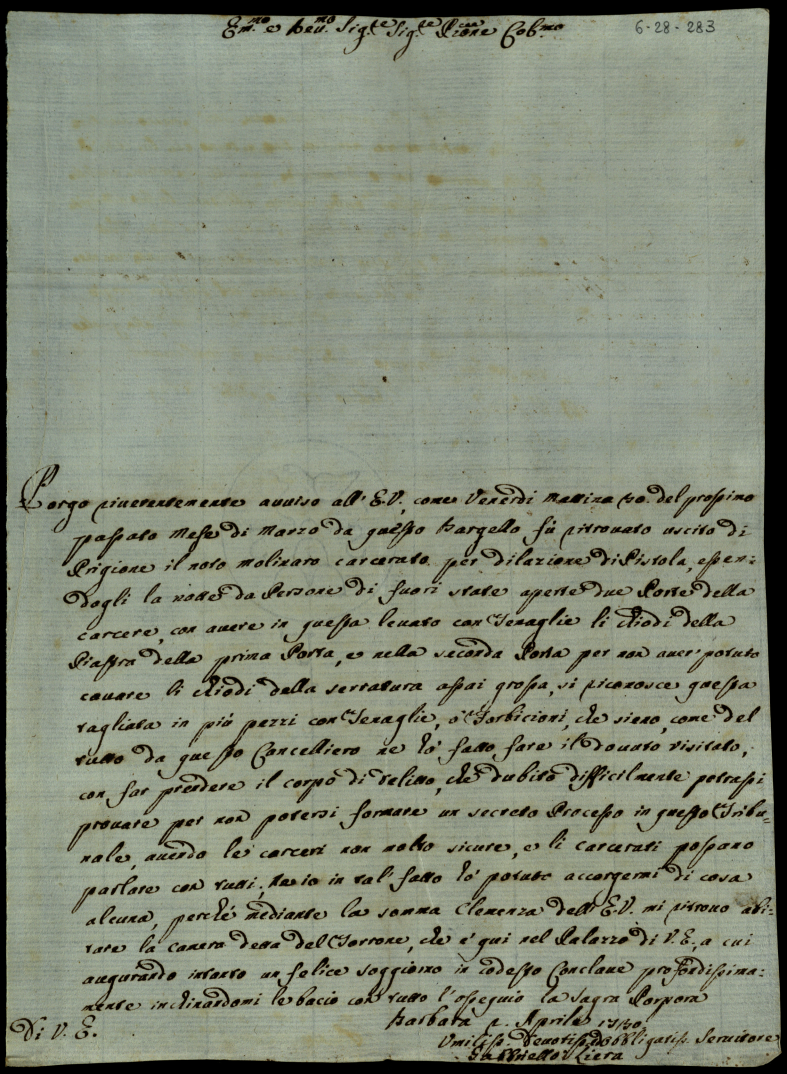 Em.mo e Reu.mo Sig.re Sig.re P̃rone Col.mo
6-28-283
Porgo riuerentemente auuiso all'E.V., come Venerdi Mattina 30. del prossimo
passato Mese di Marzo da questo Bargello fù ritrouato uscito di
Prigione il noto Molinaro carcerato per dilazione di Pistola, essen:
dogli la notte da Persone di fuori state aperte due Porte della
carcere, con auere in questa leuato con Tenaglie li chiodi della
Piastra della prima Porta, e nella seconda Porta per non auer potuto
cauare li chiodi della serratura assai grossa, si riconosce questa
tagliata in più pezzi con Tenaglie, ò Forbicioni, che sieno, come del
tutto da questo Cancelliero ne hò fatto fare il douuto visitato,
con far prendere il corpo di delitto, che dubito difficilmente potrassi
prouare per non potersi formare un secreto Processo in questo Tribu=
nale, auendo le carceri non molto sicure, e li carcerati possano
parlare con tutti, ne io in tal fatto hò potuto accorgermi di cosa
alcuna, perche mediante la somma Clemenza dell'E.V. mi ritrouo abi:
tare la camera detta del Torrone, che è qui nel Palazzo di V.E., a cui
augurando intanto un felice soggiorno in codesto Conclaue profondissima:
mente inchinandomi le bacio con tutto l'ossequio la Sagra Porpora
Di V. E.
Barbara 2. Aprile 1740.
Umiliss. Deuotiss. Obbligatiss. Seruitore
Gabbriello Liera